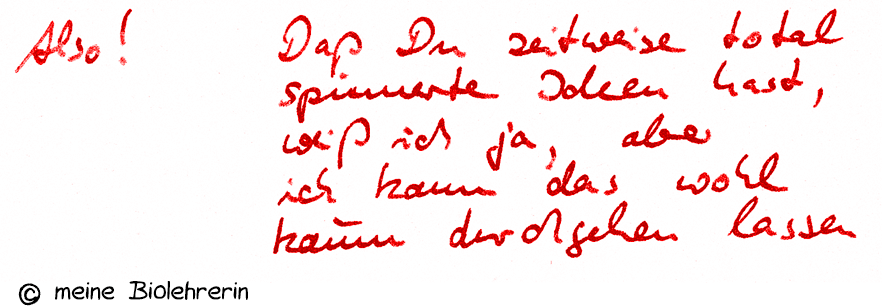 Also! Daß Du zeitweise total
spinnerte Ideen hast,
weiß ich ja, aber
ich kann das wohl
kaum durchgehen lassen
© meine Biolehrerin